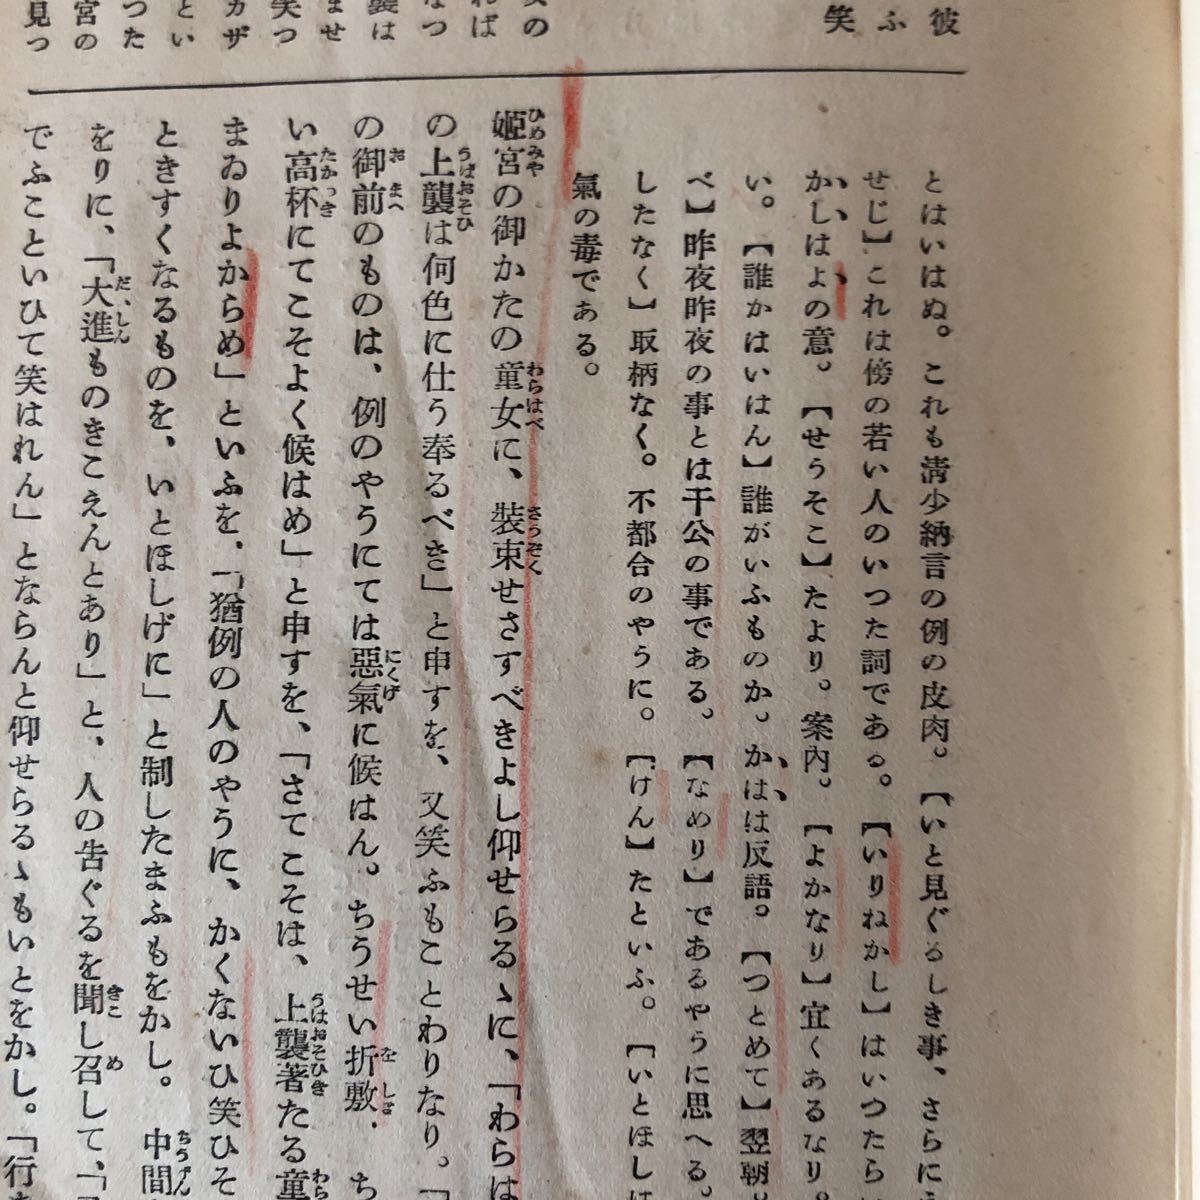 彼
ふ
笑
とはいはぬ。これも淸少納言の例の皮肉。【いと見ぐるしき事、さらに
せじ】これは傍の若い人のいつた詞である。【いりねかし】はいつたら
かしはよの意。【せうそこ】たより。案內。【よかなり】宜くあるなり。
い。【誰かはいはん】誰がいふものか。かはは反語。【つとめて】翌朝。
べ】昨夜昨夜の事とは干公の事である。【なめり】であるやうに思へる。
したなく】取柄なく。不都合のやうに。【けん】たといふ。【いとほし
氣の毒である。
姬宮の御かたの童女に、裝束せさすべきよし仰せらるゝに、「わらは
の上襲は何色に仕う奉るべき」と申すを、又笑ふもことわりなり。「
の御前のものは、例のやうにては惡氣に候はん。ちうせい折敷、ち
い高杯にてこそよく候はめ」と申すを、「さてこそは、上襲著たる童
まゐりよからめ」といふを、「猶例の人のやうに、かくないひ笑ひそ
ときすくなるものを、いとほしげに」と制したまふもをかし。中間
をりに、「大進ものきこえんとあり」と、人の吿ぐるを聞し召して、「
でふこといひて笑はれん」とならんと仰せらるゝもいとをかし。「行